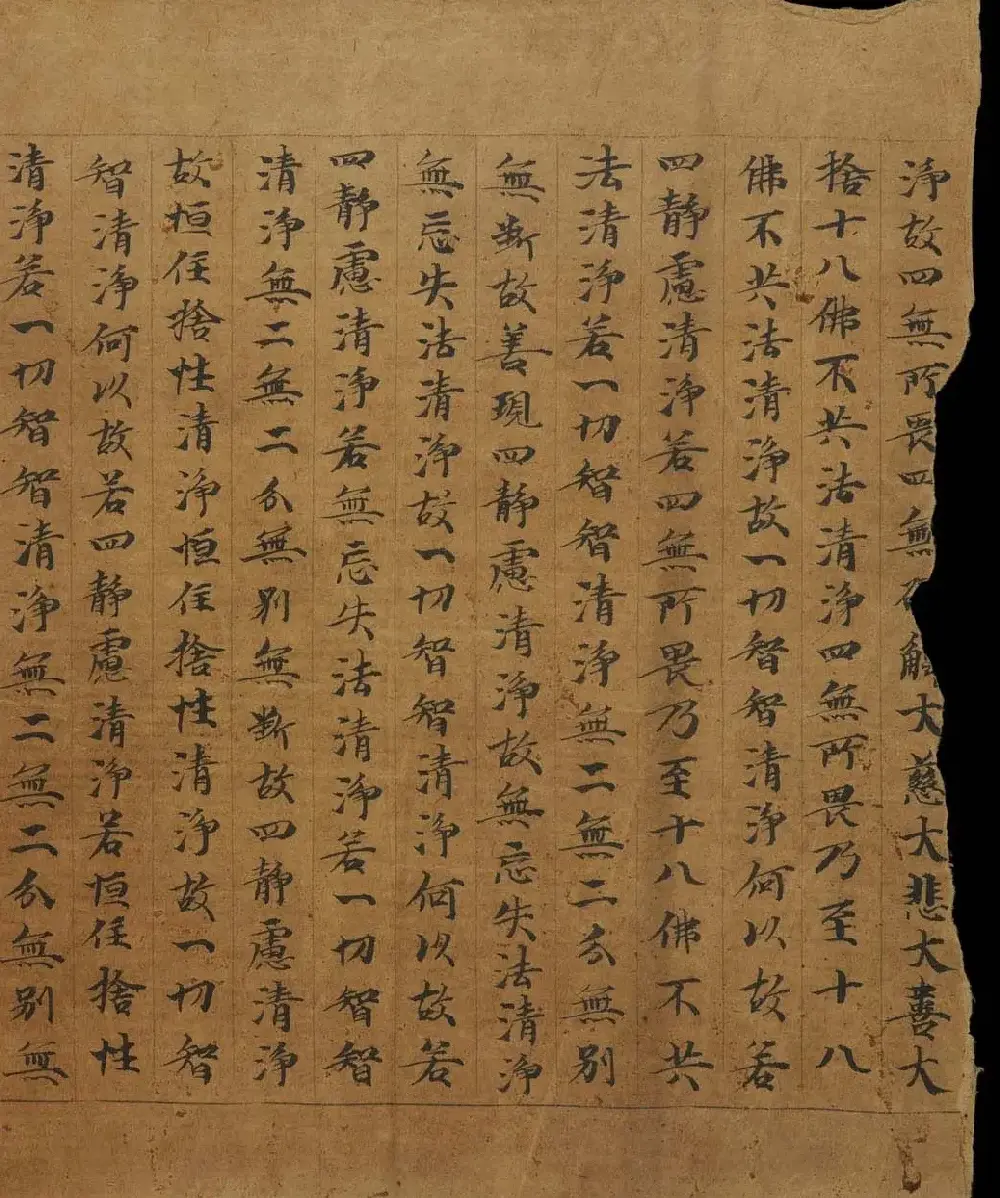 浄故四無所畏四無解大慈大悲大喜大
捨十八佛不共法清浄四無所畏乃至十八
佛不共法清浄故一切智智清浄何以故若
四静慮清浄若四無所畏乃至十八佛不共
法清浄若一切智智清浄無二無二分無別
無断故善現四静慮清浄故無忘失法清浄
無忘失法清浄故一切智智清浄何以故若
四静慮清浄若無忘失法清浄若一切智智
清浄無二無二分無別無断故四静慮清浄
故恒住捨性清浄恒住捨性清浄故一切智
智清浄何以故若四静慮清浄若恒住捨性
清浄若一切智智清浄無二無二分無別無